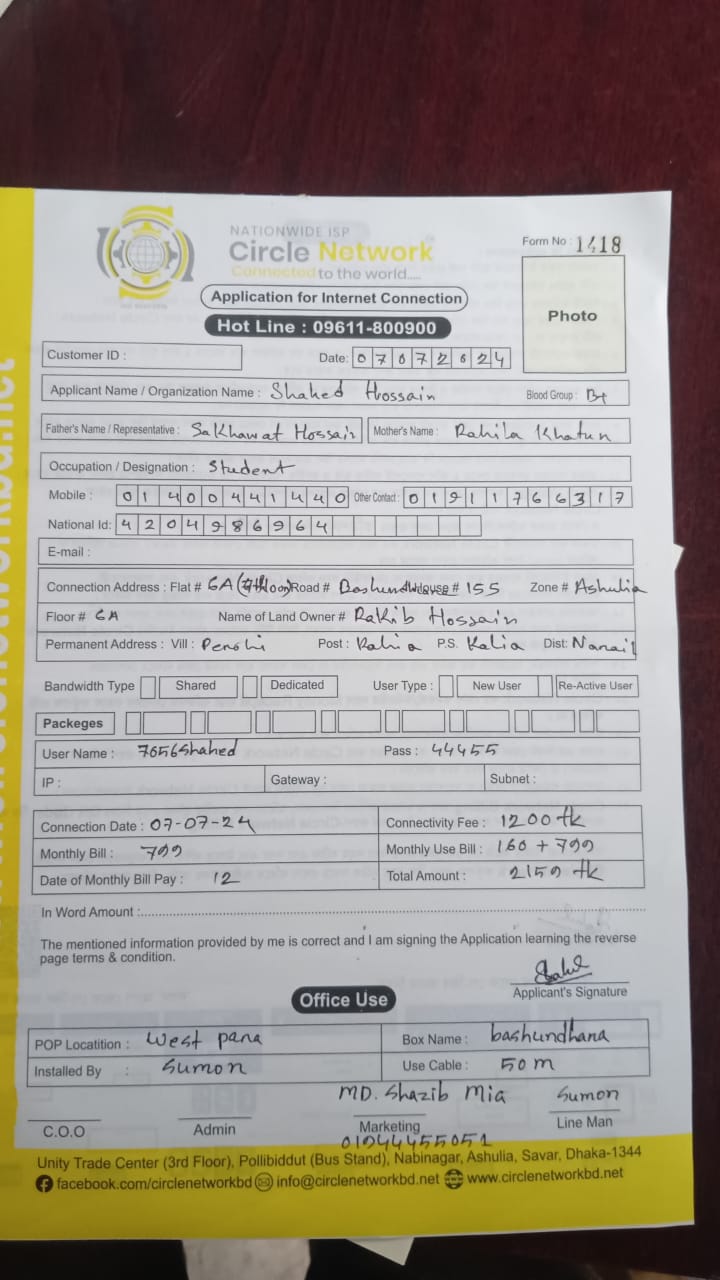 NATIONWIDE ISP
Circle Network
Connected to the world.....
Form No : 1418
Application for Internet Connection
Photo
Hot Line : 09611-800900
Customer ID :
Date: 07072024
Applicant Name / Organization Name : Shahed Hossain Blood Group : B+
Father's Name / Representative : Sakhawat Hossain Mother's Name : Rahila Khatun
Occupation / Designation : Student
Mobile : 01400441440 Other Contact : 01911766317
National Id: 4204986964
E-mail :
Connection Address : Flat # 6A Road # House # 155 Zone # Ashulia
Floor # 6A Name of Land Owner # Rakib Hossain
Permanent Address : Vill : Post : P.S. Kalia Dist: Narail
Bandwidth Type Shared Dedicated User Type : New User Re-Active User
Packeges
User Name : 7656Shahed Pass : 44455
IP : Gateway : Subnet :
Connection Date : 07-07-24 Connectivity Fee : 1200 tk
Monthly Bill : 799 Monthly Use Bill : 160 + 799
Date of Monthly Bill Pay : 12 Total Amount : 2159 tk
In Word Amount :
The mentioned information provided by me is correct and I am signing the Application learning the reverse
page terms & condition.
Applicant's Signature
Office Use
POP Locatition : West para Box Name : bashundhara
Installed By : Sumon Use Cable : 50 m
MD. Shazib Mia Sumon
C.O.O Admin Marketing Line Man
01944455051
Unity Trade Center (3rd Floor), Pollibiddut (Bus Stand), Nabinagar, Ashulia, Savar, Dhaka-1344
facebook.com/circlenetworkbd info@circlenetworkbd.net www.circlenetworkbd.net